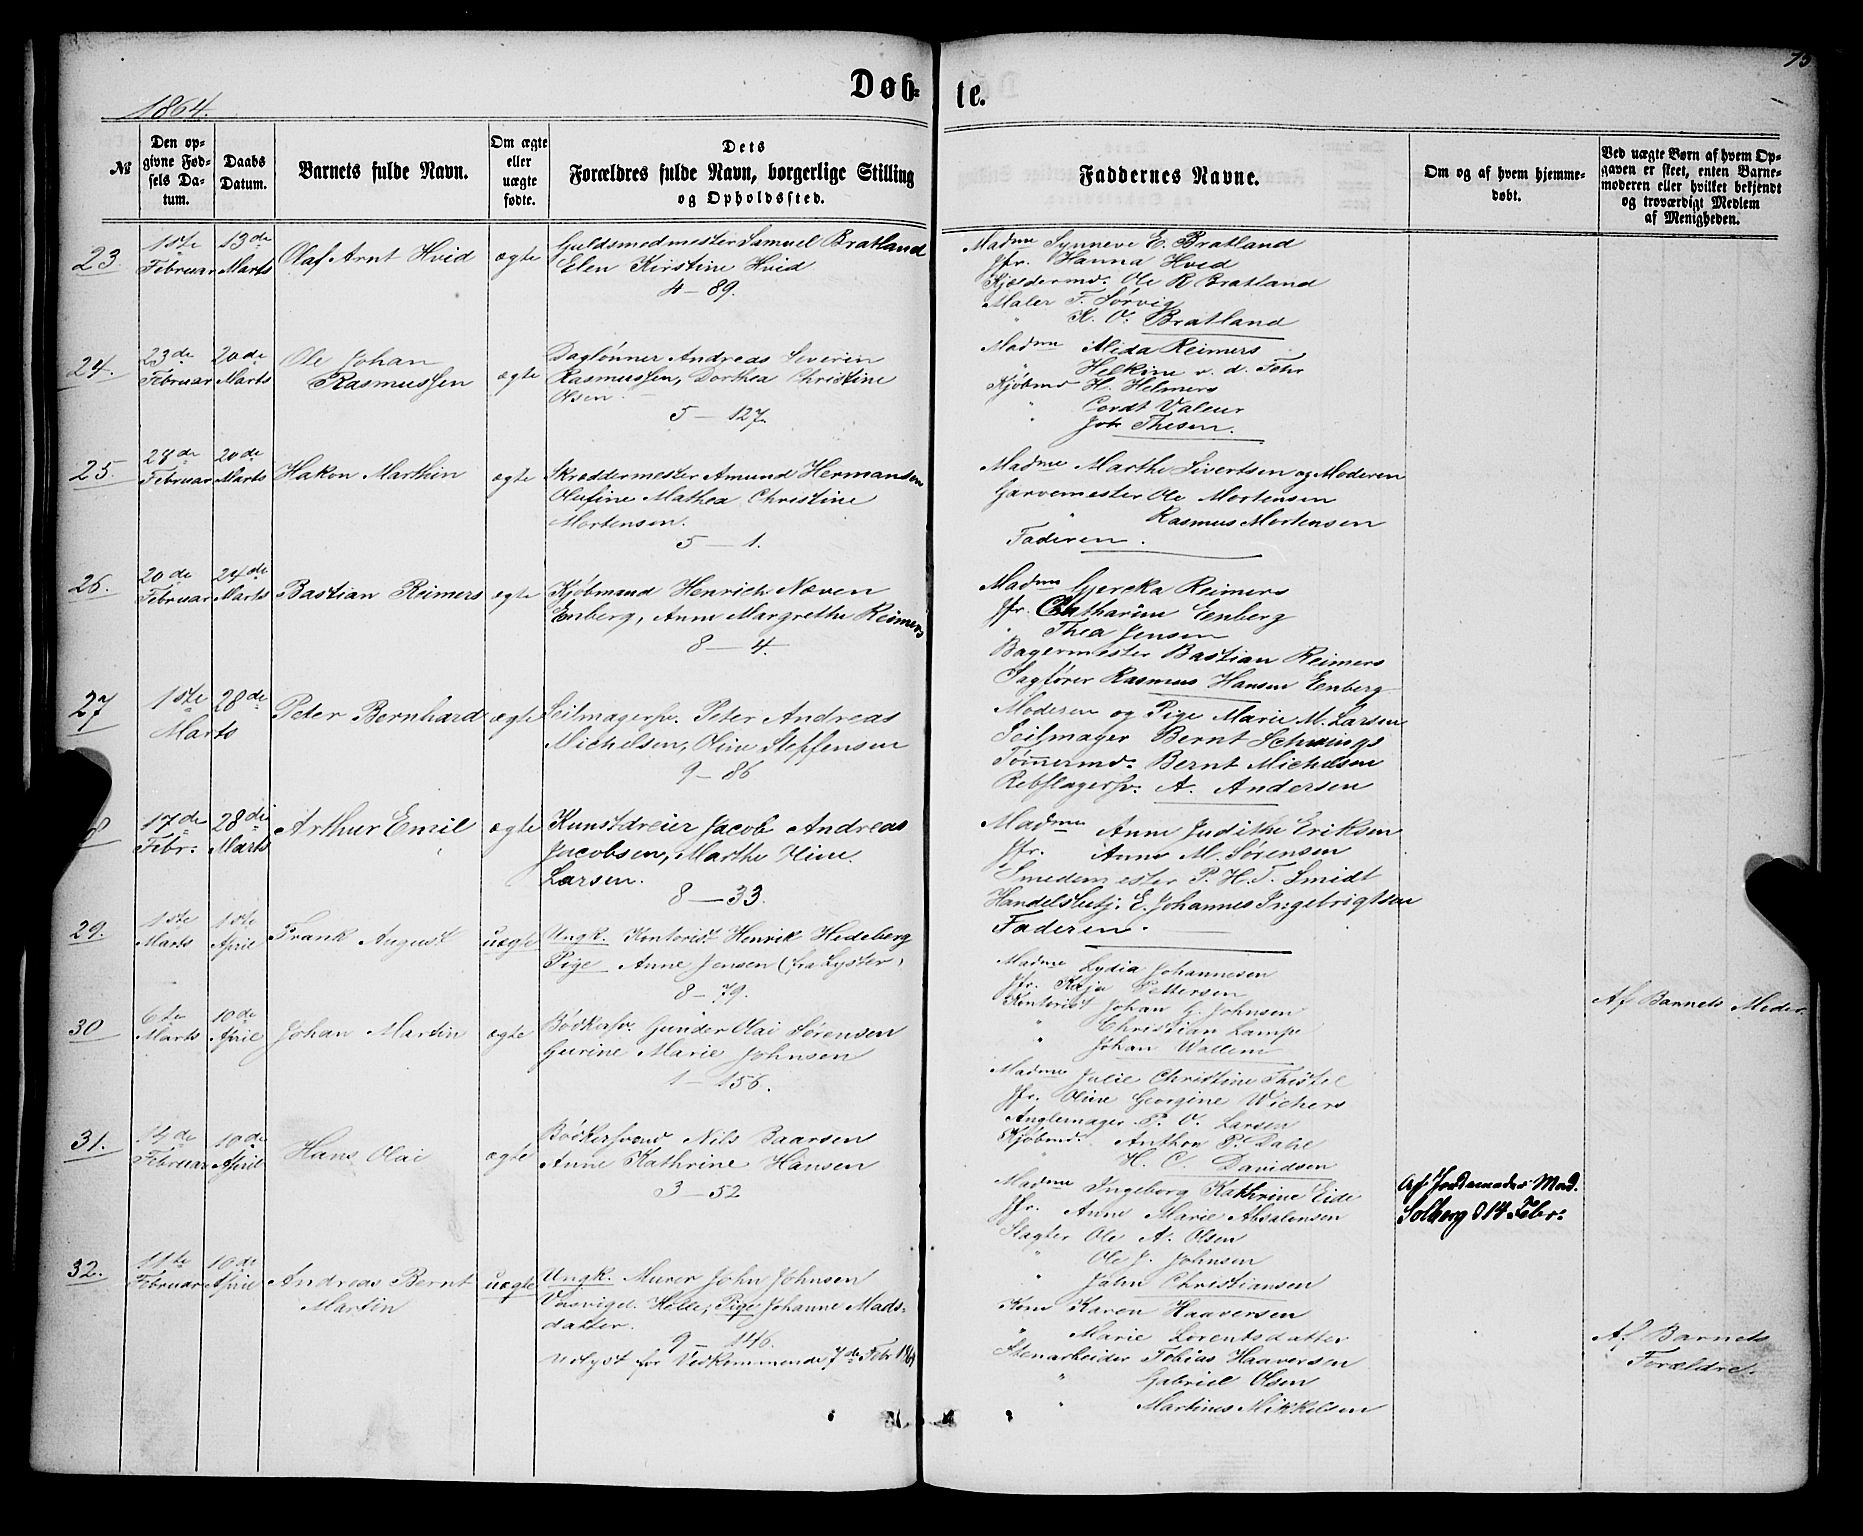 75
Døb- te.
1864.
№
Den op-
givne Fød-
sels Da-
tum.
Daabs
Datum.
Barnets fulde Navn.
Om ægte
eller
uægte
fødte.
Dets
Forældres fulde Navn, borgerlige Stilling
og Opholdssted.
Faddernes Navne.
Om og af hvem hjemme-
døbt.
Ved uægte Børn af hvem Op-
gaven er skeet, enten Barne-
moderen eller hvilket bekjendt
og troværdigt Medlem
af Menigheden.
23
1ste Februar
13de Marts
Olaf Arnt Hvid
ægte
Guldsmedmester Samuel Bratland
Elen Kirstine Hvid
4 - 89.
Madme Synneve E. Bratland
Jfr. Hanna Hvid
Kjældermd. Ole R Bratland
Maler F. Sørvig
" K. O. Bratland
24.
23de Februar
20de Marts
Ole Johan
Rasmussen
ægte
Daglønner Andreas Severin
Rasmussen, Dorthea Christine
Olsen.
5 - 127.
Madme Alida Reimers
" Helkine v. d. Fehr
Kjøbmd H. Helmers
" Cordt Valeur
" Joh Thesen.
25
28de Februar
20de Marts
Hakon Marthin
ægte
Skræddermester Amund Hermansen
Olufine Mathea Christine
Mortensen.
5 - 1.
Madme Marthe Sivertsen og Moderen
Garvemester Ole Mortensen
" Rasmus Mortensen
Faderen.
26.
20de Februar
24de Marts
Bastian Reimers
ægte
Kjøbmand Henrich Næven
Enberg, Anne Margrethe Reimers
8 - 4.
Madme Gjercka Reimers
Jfr. Chatharine Eenberg
" Thea Jensen
Bagermester Bastian Reimers
Sagfører Rasmus Hansen Eenberg
27
1ste Marts
28de
Peter Bernhard
ægte
Seilmagersv. Peter Andreas
Michelsen, Oline Steffensen
9 - 86
Moderen og Pige Marie M. Larsen
Seilmager Bernt Schwings
Tømmermd. Bernt Michelsen
Rebslagersv. A. Andersen
8
17de Febr.
28de Marts
Arthur Emil
ægte
Kunstdreier Jacob Andreas
Jacobsen, Marthe Oline
Larsen.
8 - 33.
Madme Anne Judithe Eriksen
Jfr. Anne M. Sørensen
Smedemester P. H. T. Smidt
Handelsbetj. E. Johannes Ingebrigtsen
Faderen.
29.
1ste Marts
1ste April
Frank August
uægte
Ungk. Kontorist Henrik Hedeberg
Pige Anne Jensen (fra Lyster,
8 - 79.
Madme Lydia Johannesen
Jfr. Kaja Pettersen
Kontorist Johan G. Johnsen
" Christian Lampe
" Johan Wallem
Af Barnets Moder
30
6te Marts
10de April
Johan Martin
ægte
Bødkersv. Gunder Olai Sørensen
Gurine Marie Johnsen
1 - 156.
Madme Julie Christine Thistel
Jfr. Oline Georgine Wichers
Anglemager P. O. Larsen
Kjøbmd. Anthon P. Dahl
H. C. Davidsen
31.
14de Februar
10de April
Hans Olai
ægte
Bødkersvend Nils Baarsen
Anne Kathrine Hansen
3 - 52
Madme Ingeborg Kathrine Eide
Jfr. Anne Marie Absalonsen
Slagter Ole A. Olsen
" Ole J. Johnsen
" John Christiansen
Af Jordemoder Mad.
Solberg d 14 Febr.
32.
11te Februar
10de April
Andreas Bernt
Martin
uægte
Ungk. Murer John Johnsen
Vasvigel. Helle, Pige Johanne Mads-
datter.
9 - 146.
Udlyst for Vedkommende 7de Febr 1864
Kone Karen Haaversen
" Marie Lorentsdatter
Stenarbeider Tobias Haaversen
" Gabriel Olsen
" Martines Mikkelsen
Af Barnets
Forældre.